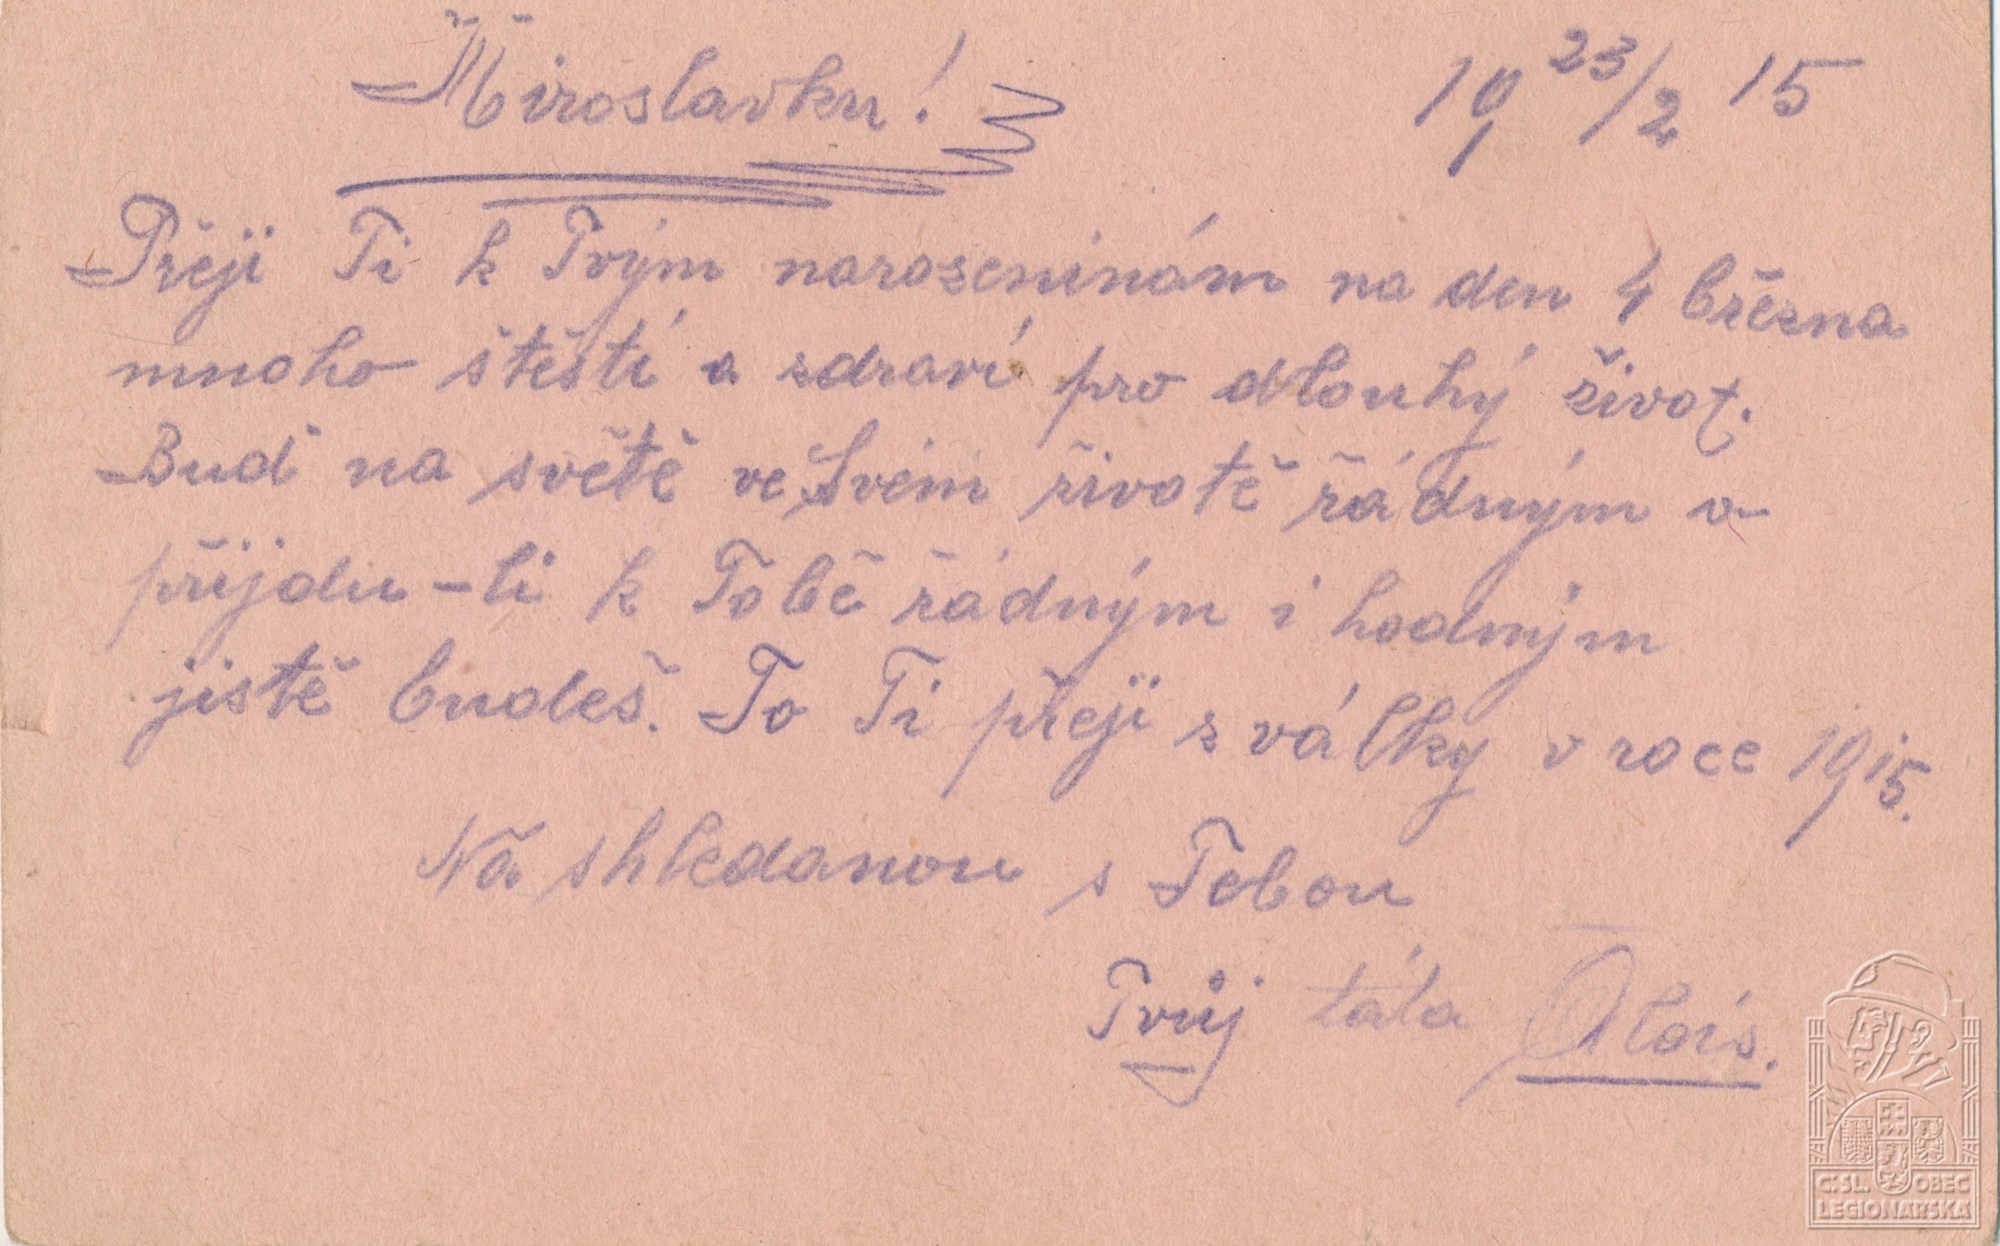 Miroslavku!
19 23/2 15
Přeji Ti k Tvým narozeninám na den 4 března
mnoho štěstí a zdraví pro dlouhý život.
Buď na světě ve svém životě řádným v
přijdu-li k Tobě řádným i hodným
jistě budeš. To Ti přeji z války v roce 1915.
Na shledanou s Tebou
Tvůj táta Alois.
Č:SL. OBEC
LEGIONÁŘSKÁ